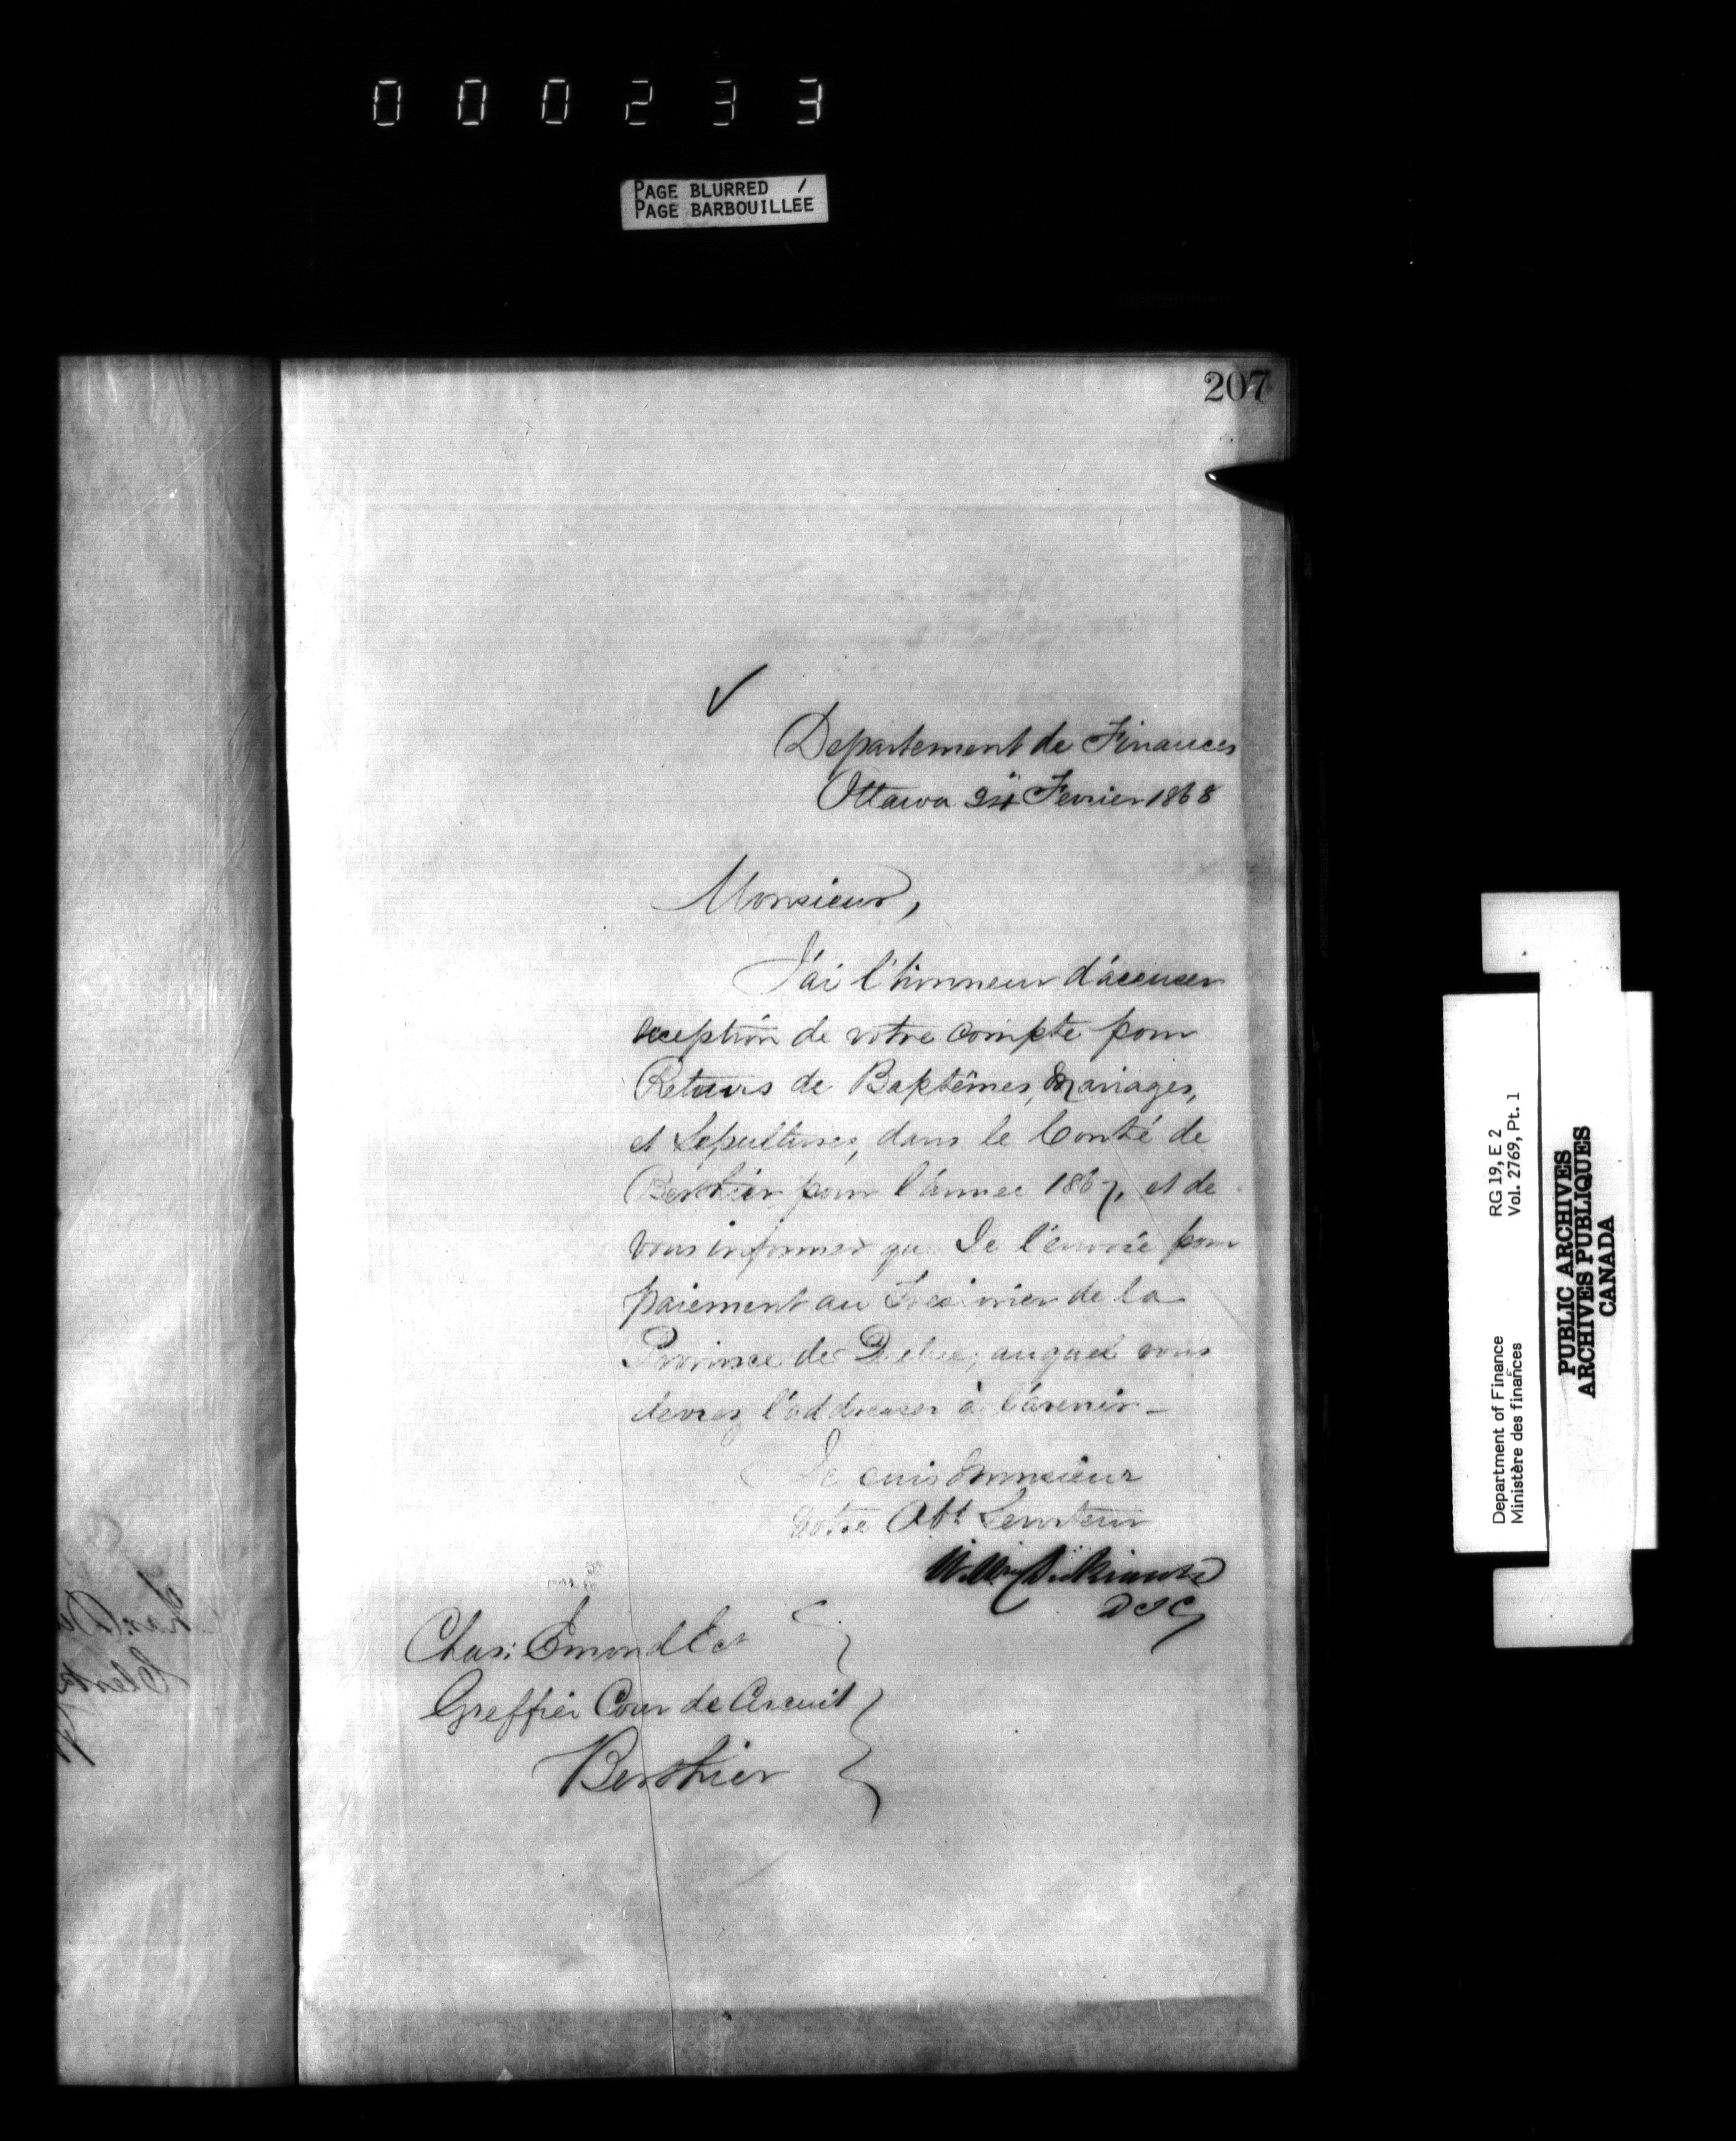 000233
PAGE BLURRED /
PAGE BARBOUILLÉE
207
Departement de Finances
Ottawa 24 Fevrier 1868
Monsieur,
J'ai l'honneur d'accuser
reception de votre compte pour
Retours de Baptêmes, Mariages,
et Sepultures, dans le Comté de
Berthier pour l'annee 1867, et de
vous informer que Je l'envoie pour
paiement au Tresorier de la
Province de Quebec, auquel vous
devrez l'addresser à l'avenir_
Je suis Monsieur
Votre Obt Serviteur
Wm Dickinson
D I G
Chas: Emond
Greffier Cour de Circuit
Berthier
Department of Finance RG 19, E 2
Ministère des finances Vol. 2769, Pt. 1
PUBLIC ARCHIVES
ARCHIVES PUBLIQUES
CANADA